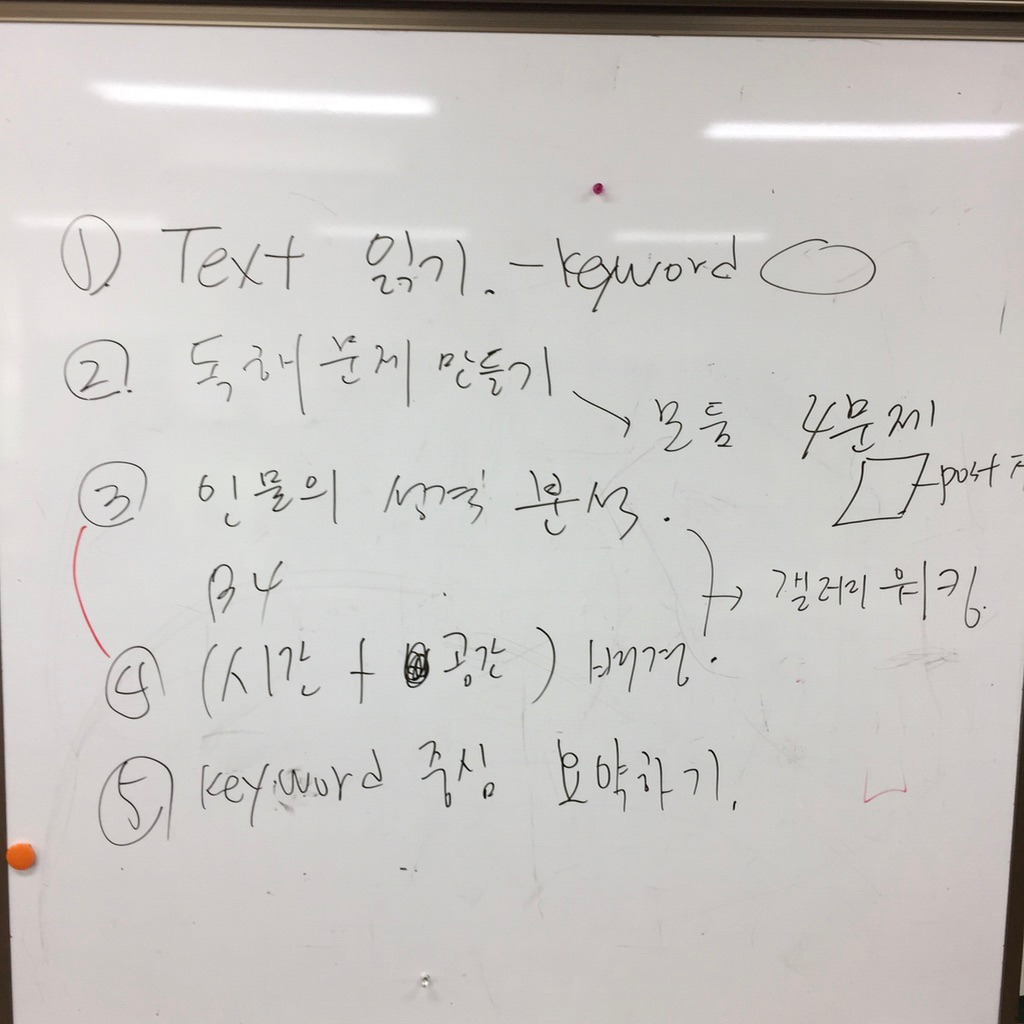 ① Text 읽기. - keyword
② 독해 문제 만들기
→ 모둠 4문제
post
③ 인물의 성격 분석.
B4
→ 갤러리 워킹.
④ (시간 + 공간) 배경.
⑤ keyword 중심 요약하기.